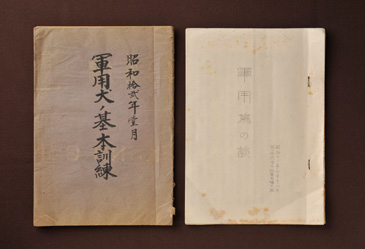 昭和拾貮年壹月
軍用犬ノ基本訓練
軍用鳩の話